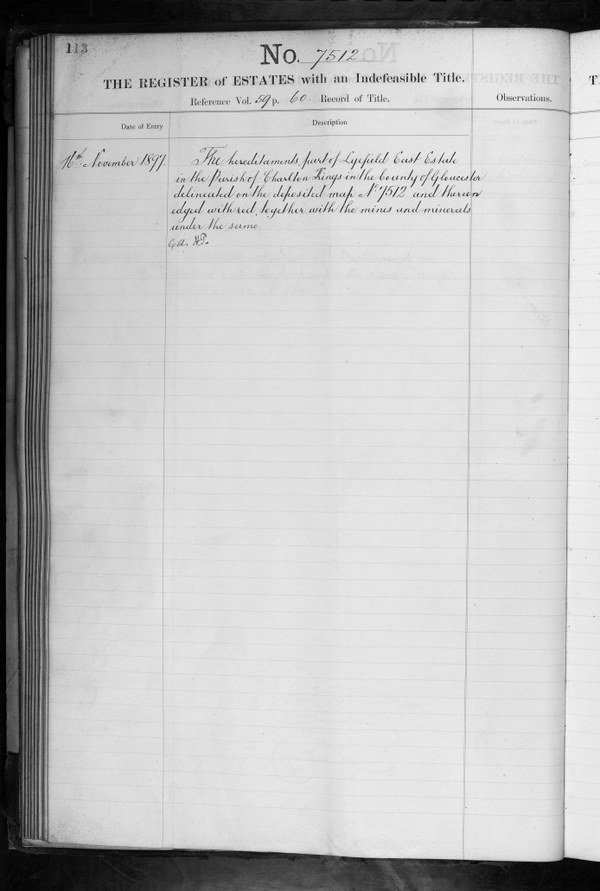 113
No. 7512
THE REGISTER of ESTATES with an Indefeasible Title.
Reference Vol. 59 p. 60 Record of Title.
Observations.
Date of Entry
Description
16th November 1897
The hereditaments, part of Lyefield East Estate
in the Parish of Charlton Kings in the County of Gloucester
delineated on the deposited map No 7512 and thereon
edged with red, together with the mines and minerals
under the same.